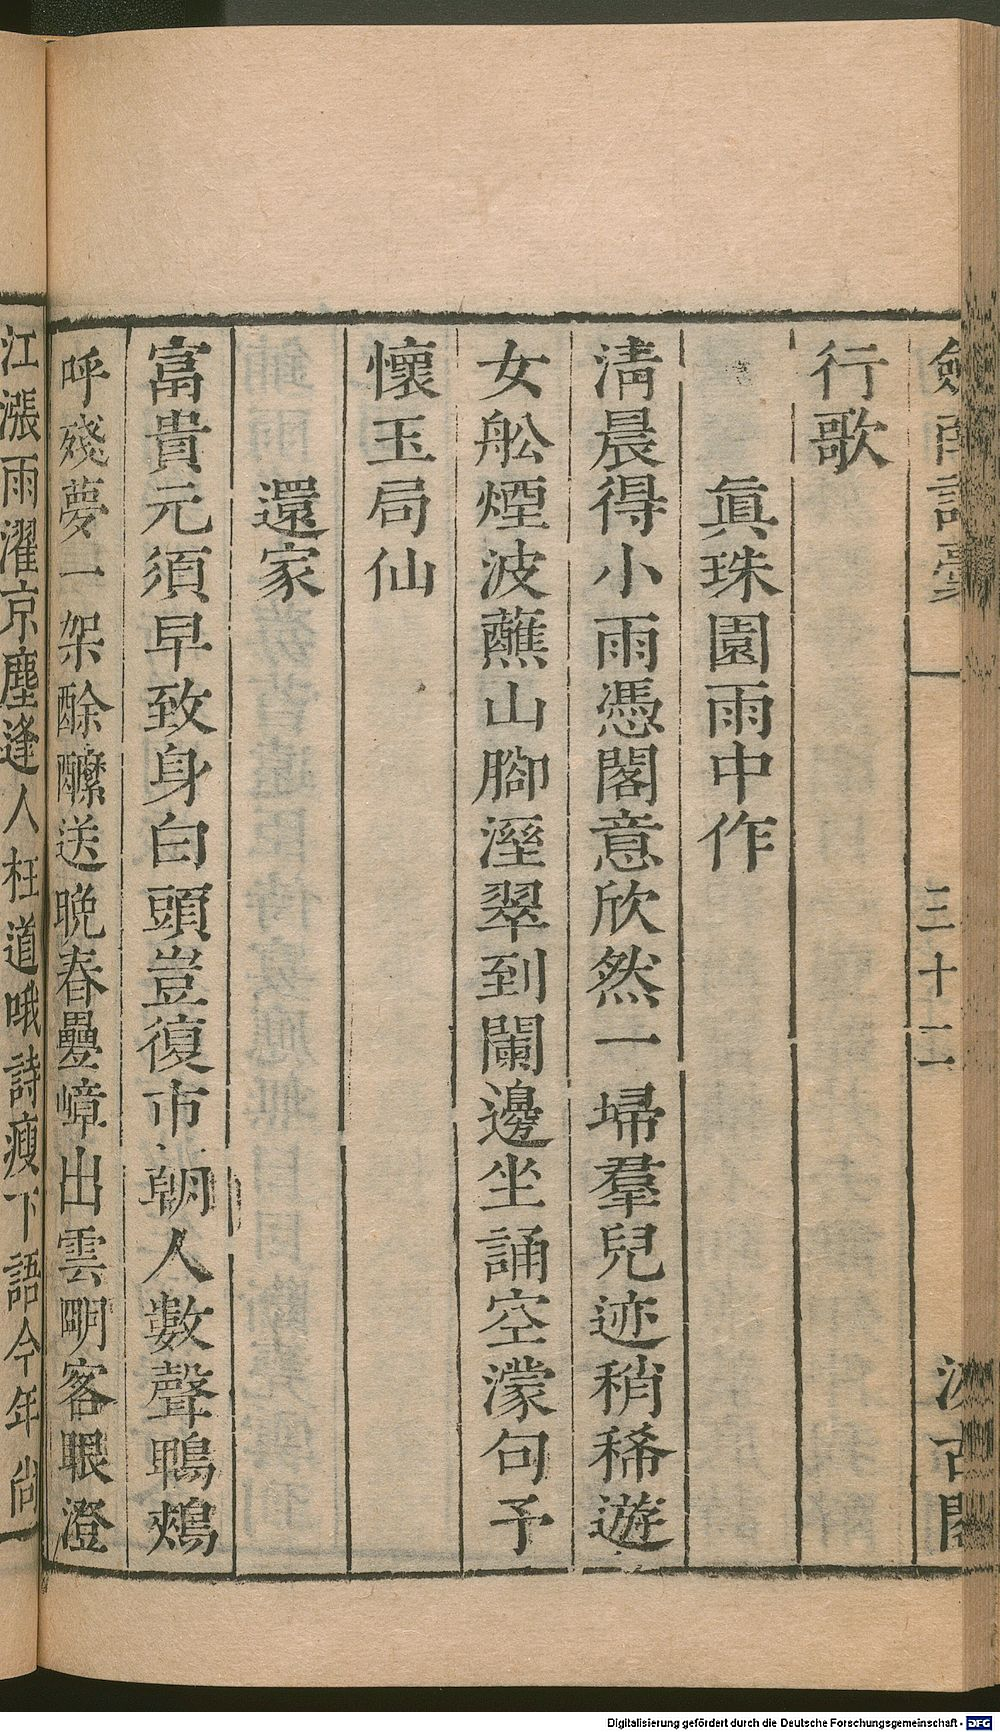 劍南詩稾 三十二 汲古閣
行歌
眞珠園雨中作
淸晨得小雨憑閣意欣然一埽羣兒迹稍稀遊
女舩煙波蘸山腳溼翠到闌邊坐誦空濛句予
懷玉局仙
還家
富貴元須早致身白頭豈復市朝人數聲鴨鵊
呼殘夢一架酴醿送晚春疊嶂出雲明客眼澄
江漲雨濯京塵逢人枉道哦詩瘦下語今年尙
Digitalisierung gefördert durch die Deutsche Forschungsgemeinschaft - DFG